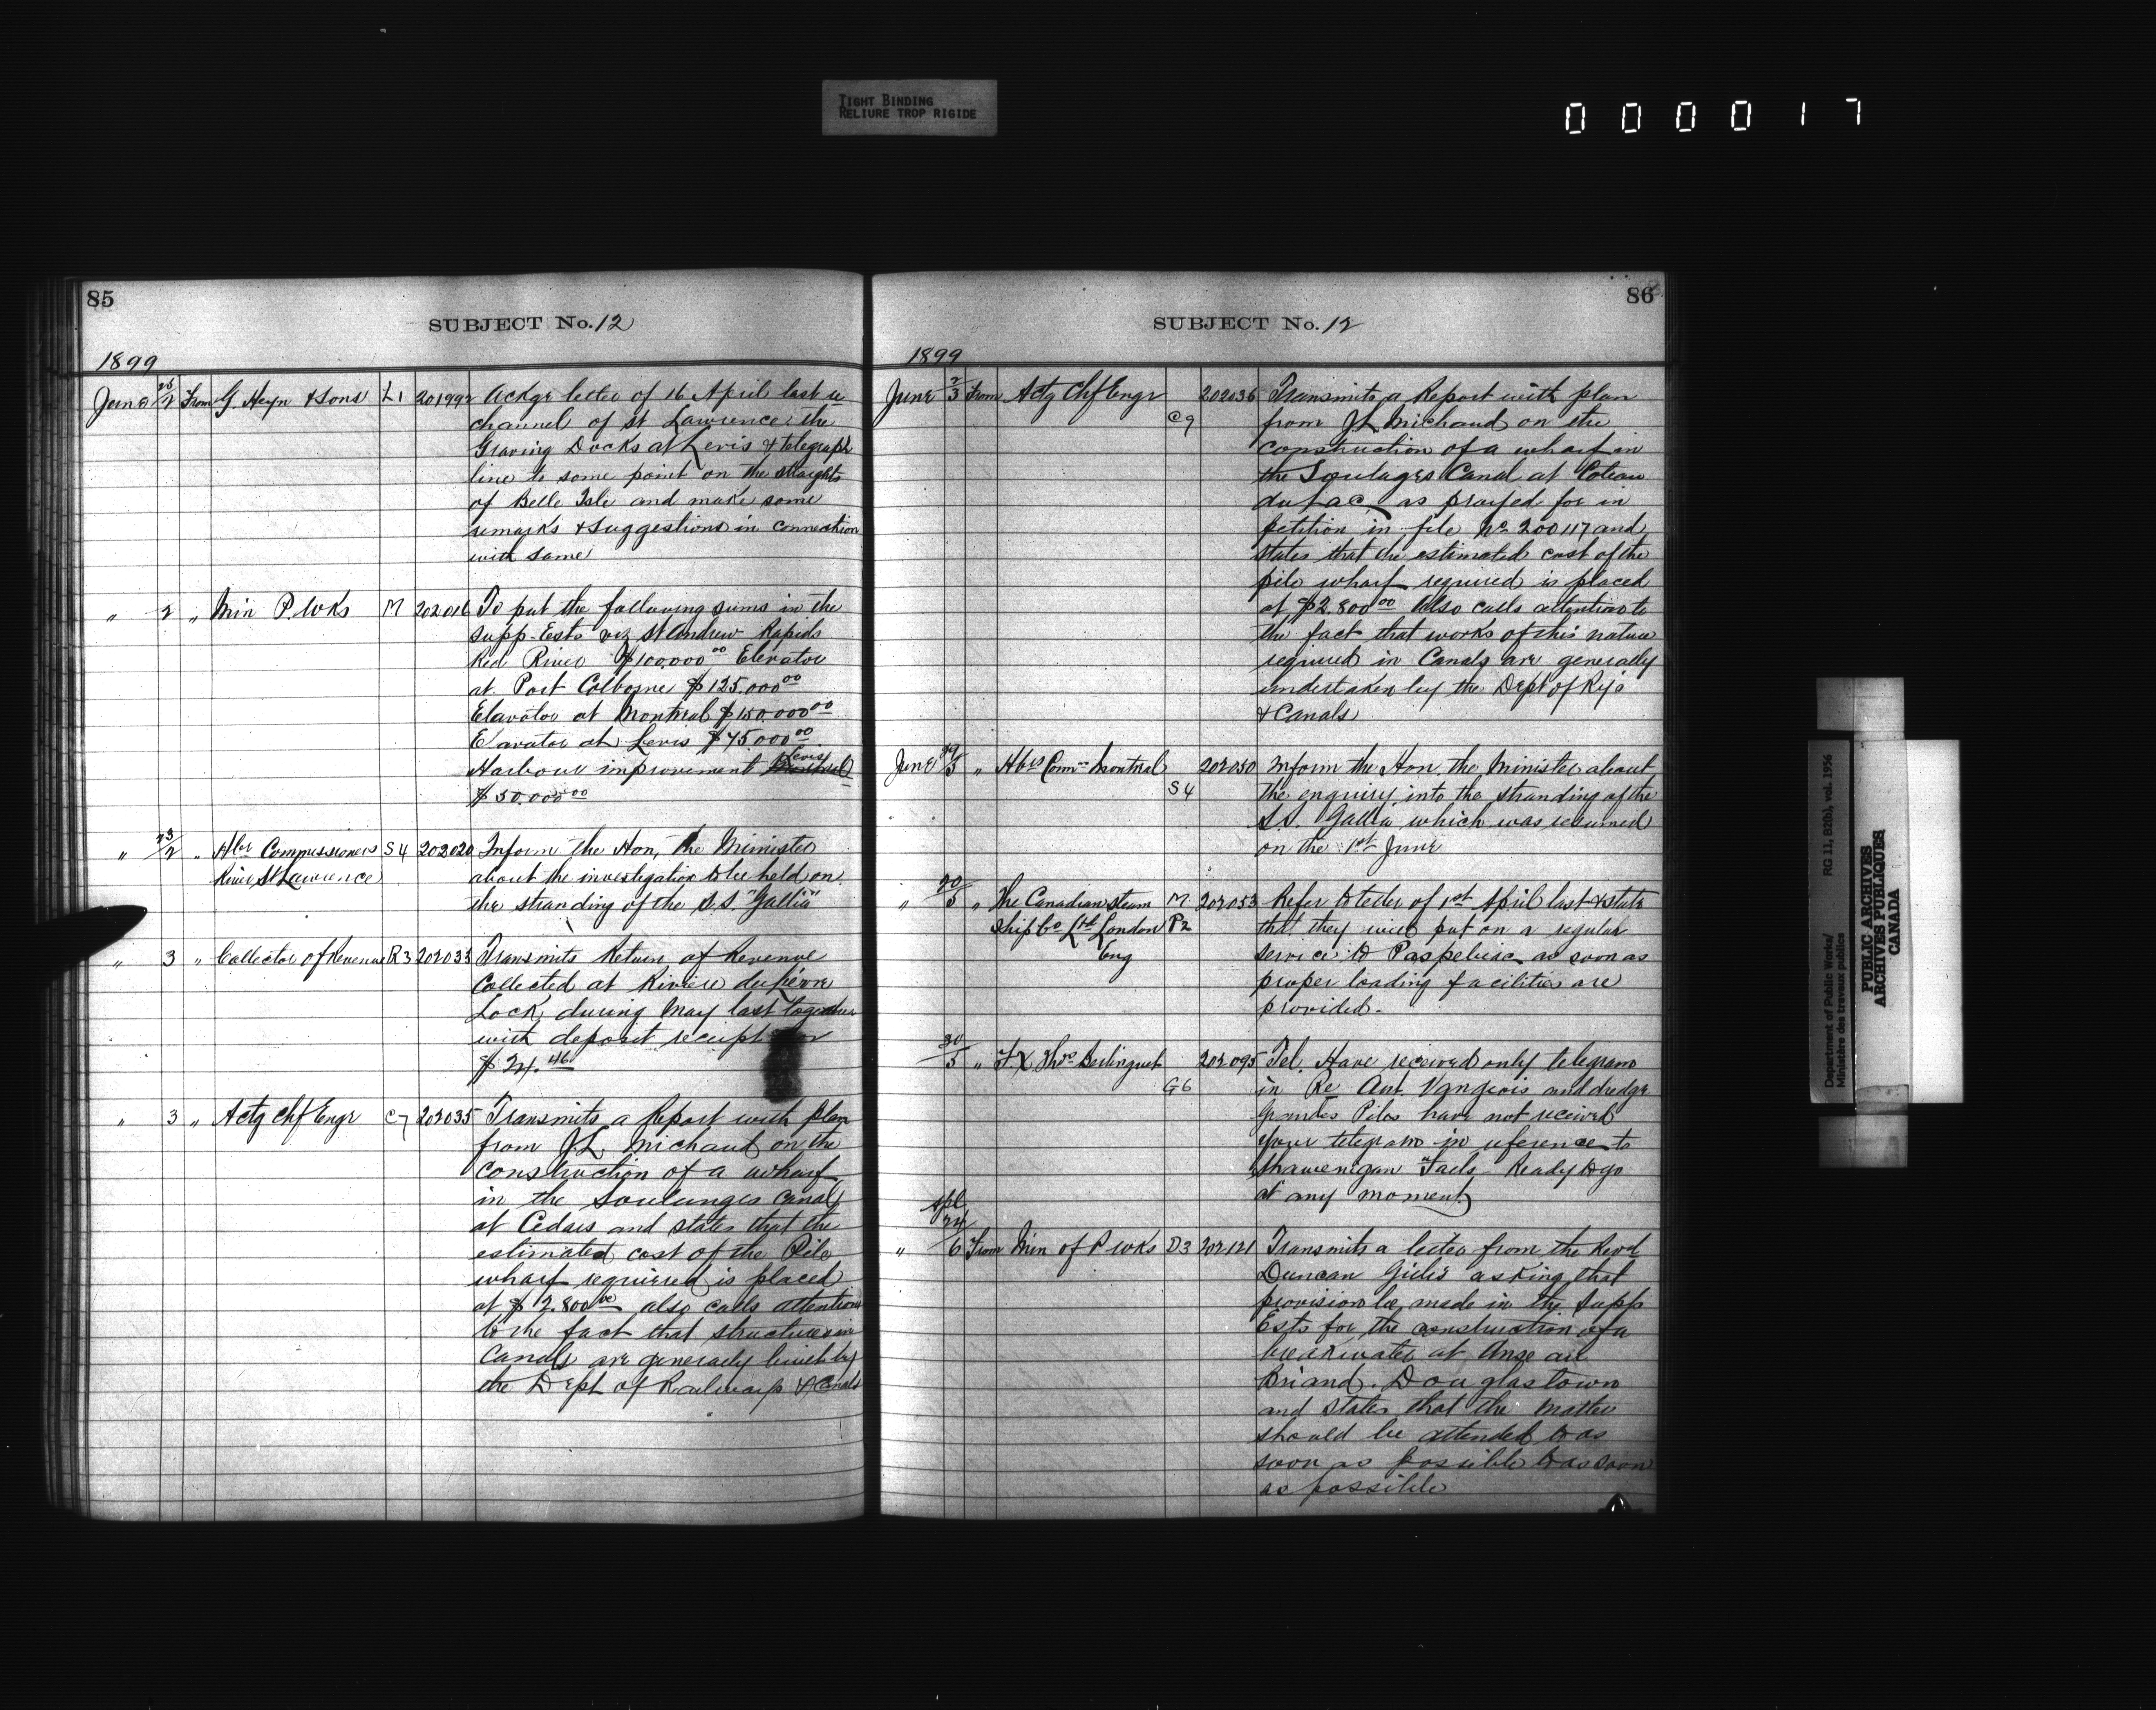 TIGHT BINDING
RELIURE TROP RIGIDE
000017
85
SUBJECT No. 12
1899
June 25/2 From G. Heyn & Sons L1 201992 Ackge letter of 16 April last re
channel of St Lawrence, the
Graving Docks at Levis & telegraph
line to some point on the straights
of Belle Isle and make some
remarks & suggestions in connection
with same
" 2 " Min P. Wks M 202016 To put the following sums in the
supp-Ests viz St Andrew Rapids
Red River $100.000 00 Elevator
at Port Colborne $125.000 00
Elavator at Montreal $150.000 00
Elavator at Levis $75.000 00
Harbour improvement Montreal Levis
$50.000 00
" 23/2 " Hbr Commissioners S4 202020 Inform the Hon, the Minister
River St Lawrence about the investigation to be held on
the stranding of the S.S. "Gallia"
" 3 " Collector of Revenue R3 202033 Transmits Return of Revenue
Collected at Rivière du Lièvre
Lock, during May last together
with deposit receipt for
$24.46
" 3 " Actg Chf Engr C7 202035 Transmits a Report with plan
from J.L. Michaud on the
construction of a wharf
in the Soulanges Canal
at Cedars and states that the
estimated cost of the Pile
wharf required is placed
at $2.800 00 also calls attention
to the fact that structures in
Canals are generally built by
the Dept of Railways & Canals
86
SUBJECT No. 12
1899
June 2/3 From Actg Chf Engr C9 202036 Transmits a Report with plan
from J.L. Michaud on the
construction of a wharf in
the Soulages Canal at Coteau
du Lac, as prayed for in
petition in file No 200117 and
states that the estimated cost of the
pile wharf required is placed
at $2.800 00 Also calls attention to
the fact that works of this nature
required in Canals are generally
undertaken by the Dept of Rys
& Canals
June 29/5 " Hbrs Comrs Montreal S4 202050 Inform the Hon. the Minister about
the enquiry into the stranding of the
S.S. Gallia which was resumed
on the 1st June
" 20/5 " The Canadian Steam M 202053 Refer to letter of 1st April last & state
Ship Co Ltd London P2 that they will put on a regular
Eng service to Paspebiac as soon as
proper loading facilities are
provided.
30/5 " F.X. Thos Berlinguet G6 202095 Tel. Have received only telegram
in Re Ant. Vangeois and dredge
Grandes Piles have not received
your telegram in reference to
Shawenigan Falls - Ready to go
at any moment
" Apl 24/6 From Min of P Wks D3 202121 Transmits a letter from the Revd
Duncan Gillis asking that
provision be made in the Supp
Ests for the construction of a
breakwater at Anse au
Briand. Douglastown
and states that the matter
should be attended to as
soon as possible to as soon
as possible
Department of Public Works/ RG 11, B2(b), vol. 1956
Ministère des travaux publics
PUBLIC ARCHIVES
ARCHIVES PUBLIQUES
CANADA